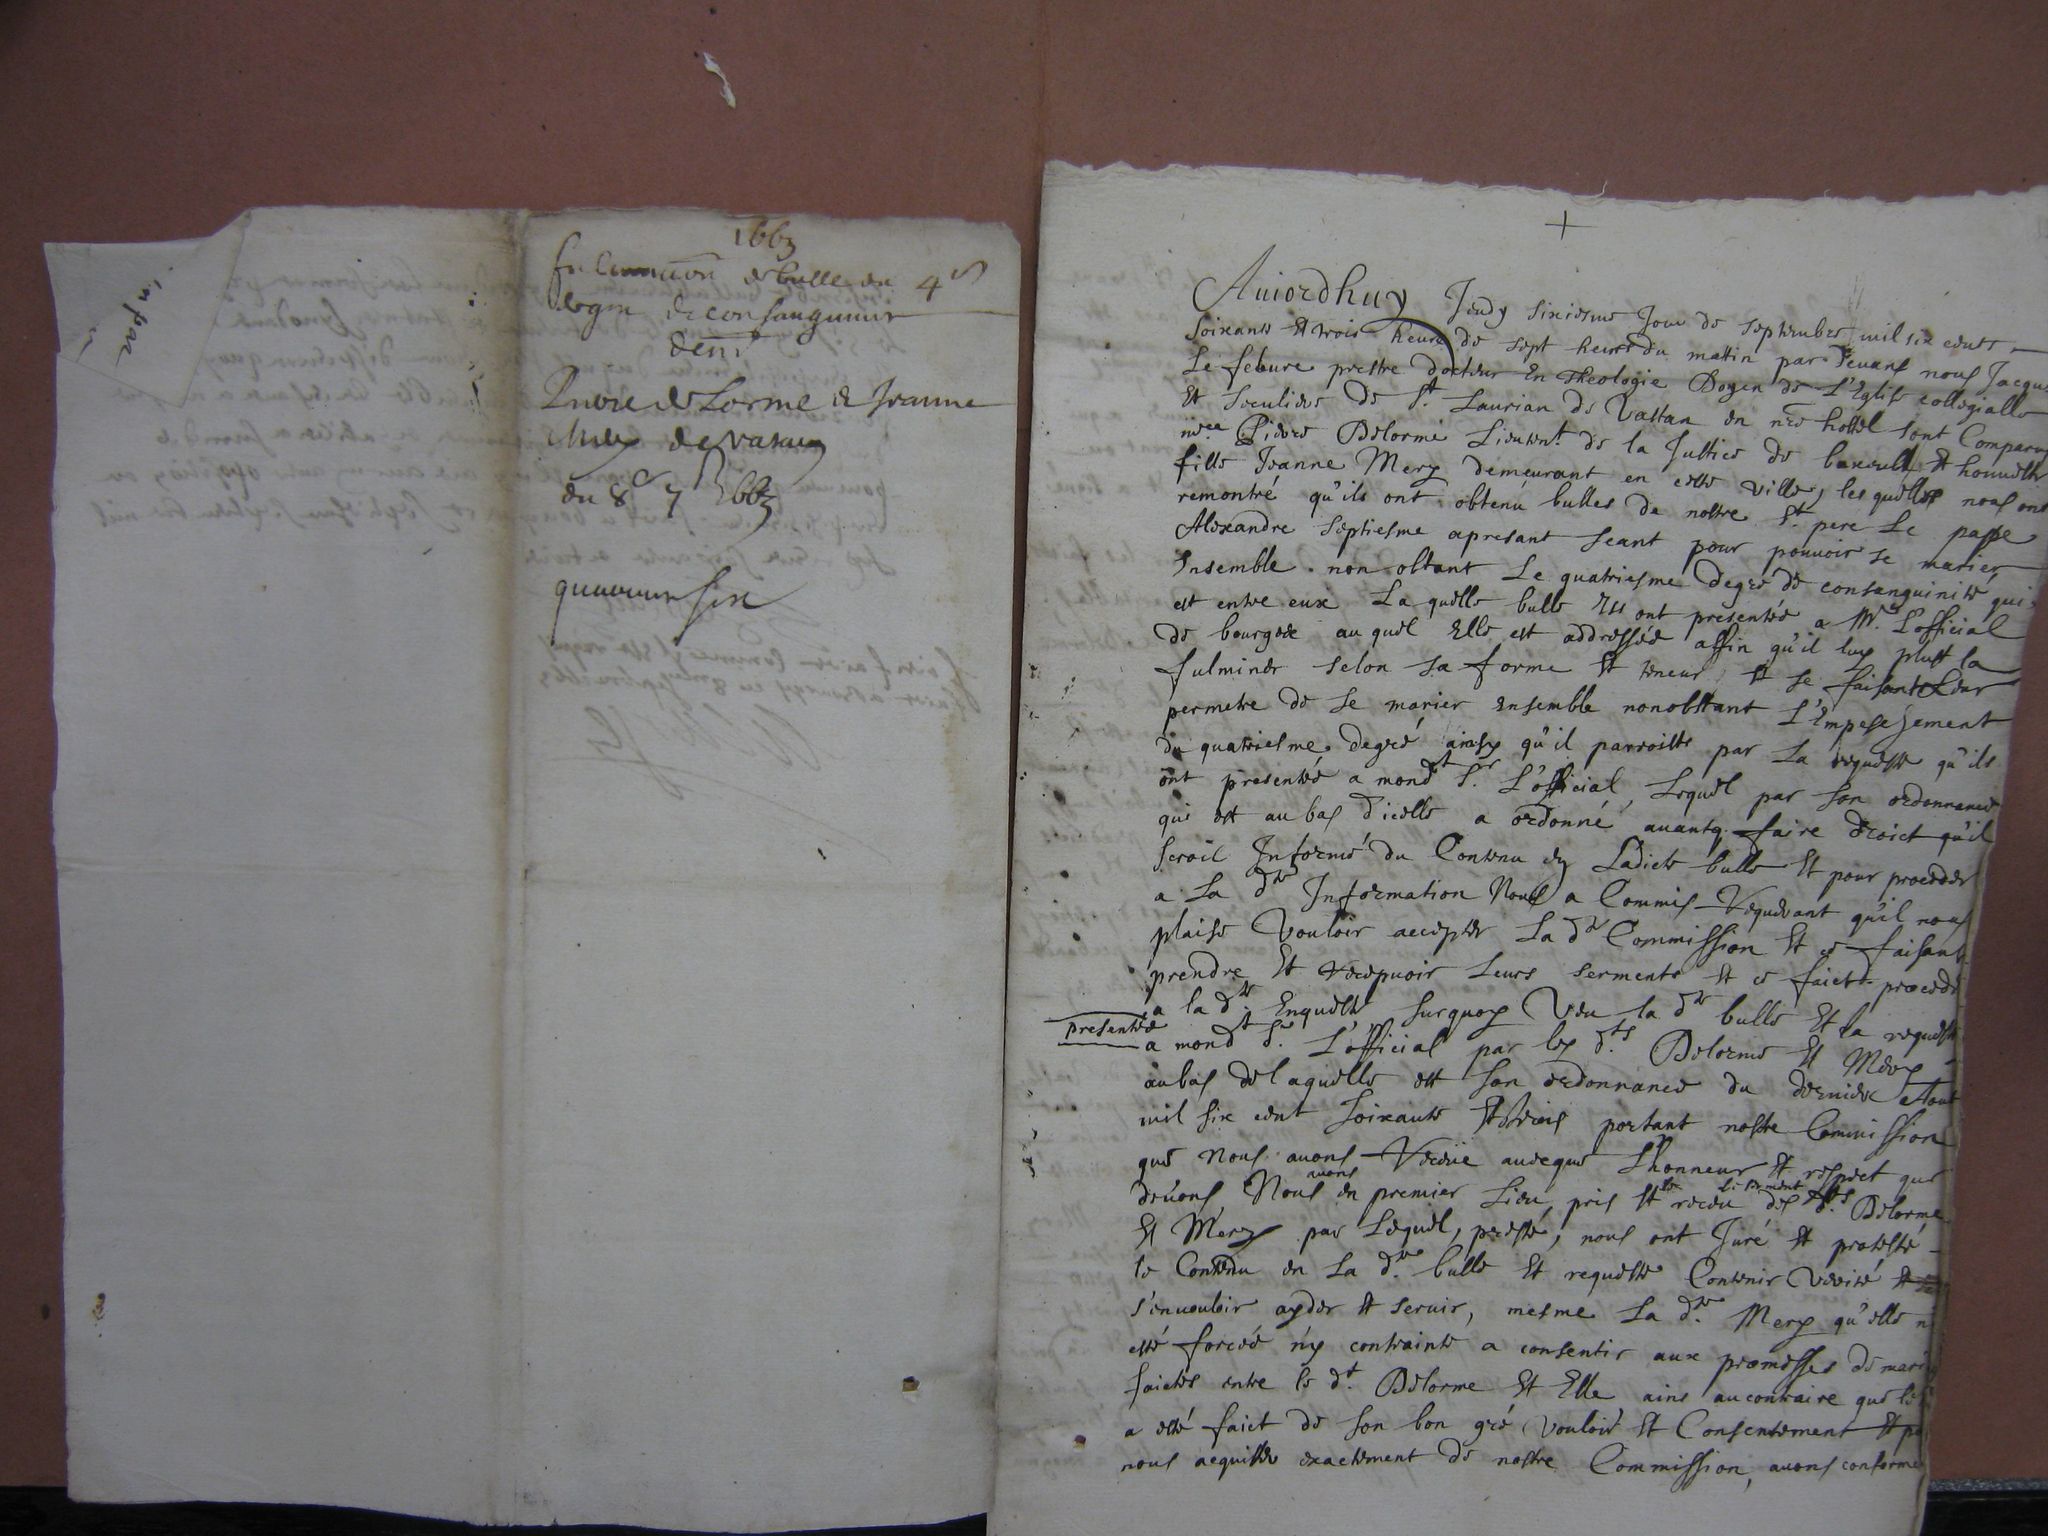 in par
1663
fulmina͠on de bulle du 4e
degre de consanguinité
dent.
Pierre de Lorme & Jeanne
Mery de Vatan
du 8e 7bre 1663
Auiordhuy Jeudy sixiesme Jour de septembre mil six cents
soixante et trois heure de sept heures du matin par deuant nous Jacques
Le febure prestre docteur En Theologie Doyen de L'Eglise collegialle
Et seculiere de St. Laurian de Vastan en nre hostel sont Comparus
me. Pierre Delorme Lieutent. de la Justice de et honneste
fille Jeanne Mery demeurant en cette ville, lesquelles nous ont
remontré qu'ils ont obtenu bulles de nostre St. pere Le pape
Alexandre septiesme apresant seant pour pouuoir se marier
Ensemble non obstant Le quatriesme degré de consanguinité qui
est entre eux Laquelle bulle Ils ont presentée a Mr. L'official
de bourges auquel Elle est addressée affin qu'il luy plust la
fulminer selon sa forme et teneur, et se faisant Leur
permetre de se marier ensemble nonobstant L'Empeschement
du quatriesme degré ainsy qu'il parroiste par La requeste qu'ils
ont presentée a mondt Sr. L'official, Lequel par son ordonnance
qui est au bas d'icelle a ordonné auantq. faire droict qu'il
seroit Informé du Contenu en Ladicte bulle Et pour proceder
a La dte Information Nous a Commis Requerant qu'il nous
plaise Vouloir accepter La dte Commission Et ce faisant
prendre Et recepuoir Leurs serments et ce faict proceder
a la dte Enqueste surquoy Veu la dte bulle Et la requeste
presentée
a mondt Sr. L'official par les dts. Delorme Et Mery
au bas de laquelle est son ordonnance du dernier Aout
mil six cent soixante Et trois portant nostre Commission
que Nous auons Receüe auecque L'honneur et respect que
deuons Nous auons en premier Lieu, pris et receu le serment des dts. Delorme
Et Mery par Lequel, presté, nous ont Juré et protesté
le Contenu en La dte. bulle et requeste Contenir verité et
s'en vouloir ayder et seruir, mesme La dte. Mery qu'elle n
esté forcée ny contrainte a consentir aux promesses de mari
faictes entre le dt. Delorme Et Elle ains au contraire que le
a esté faict de son bon gré vouloir et Consentement et po
nous acquitter exactement de nostre Commission, auons conforme